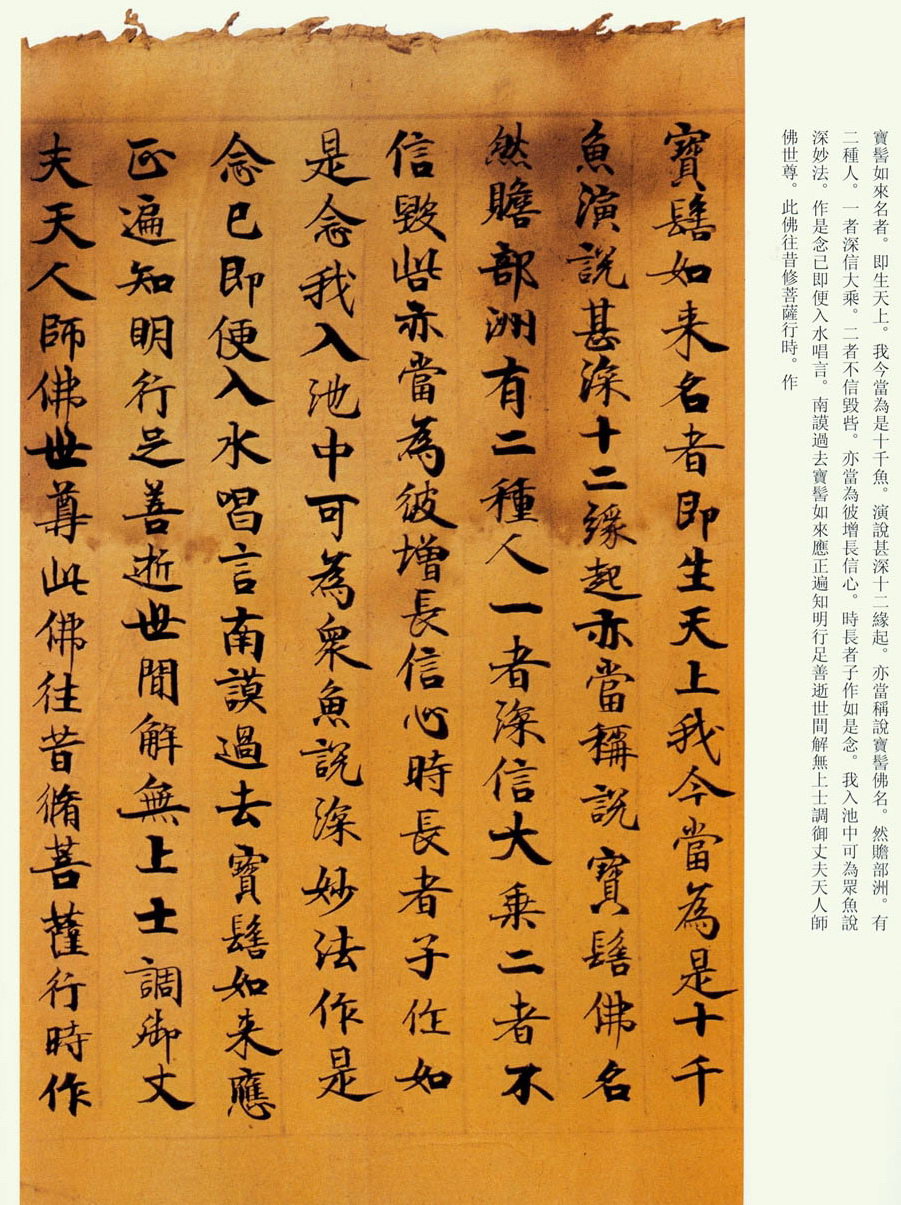 寶髻如來名者。即生天上。我今當為是十千魚。演說甚深十二緣起。亦當稱說寶髻佛名。然贍部洲。有
二種人。一者深信大乘。二者不信毀呰。亦當為彼增長信心。時長者子作如是念。我入池中可為眾魚說
深妙法。作是念已即便入水唱言。南謨過去寶髻如來應正遍知明行足善逝世間解無上士調御丈夫天人師
佛世尊。此佛往昔修菩薩行時。作
寶髻如来名者即生天上我今當為是十千
魚演說甚深十二緣起亦當稱說寶髻佛名
然贍部洲有二種人一者深信大乘二者不
信毀呰亦當為彼增長信心時長者子作如
是念我入池中可為衆魚說深妙法作是
念已即便入水唱言南謨過去寶髻如来應
正遍知明行足善逝世間解無上士調御丈
夫天人師佛世尊此佛往昔脩菩薩行時作